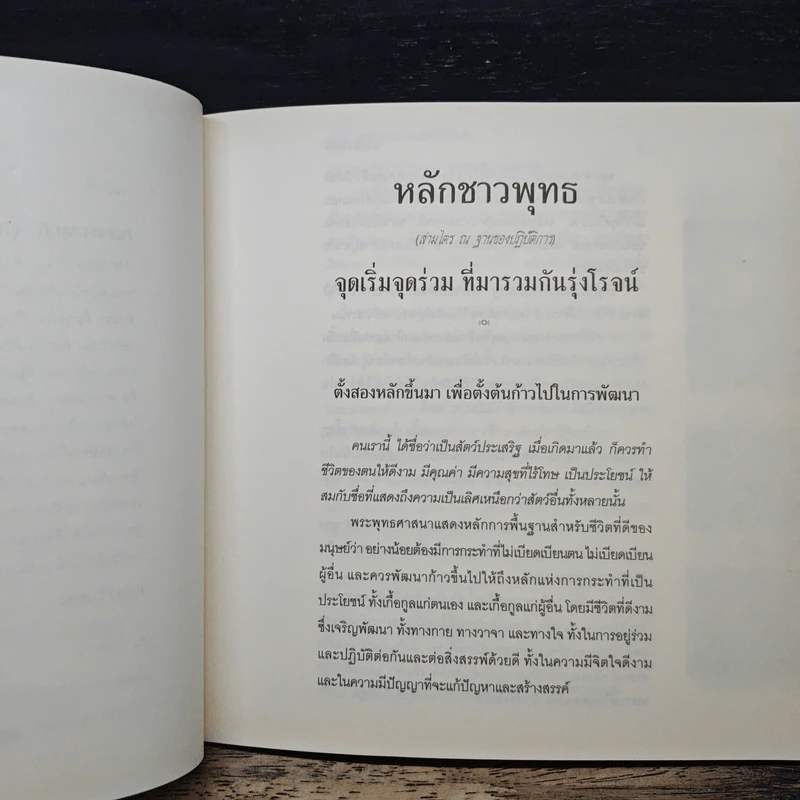 หลักชาวพุทธ
(สามไตร ณ ฐานของปฏิบัติการ)
จุดเริ่มจุดร่วม ที่มารวมกันรุ่งโรจน์
ตั้งสองหลักขึ้นมา เพื่อตั้งต้นก้าวไปในการพัฒนา
คนเรานี้ ได้ชื่อว่าเป็นสัตว์ประเสริฐ เมื่อเกิดมาแล้ว ก็ควรทำ
ชีวิตของตนให้ดีงาม มีคุณค่า มีความสุขที่ไร้โทษ เป็นประโยชน์ ให้
สมกับชื่อที่แสดงถึงความเป็นเลิศเหนือกว่าสัตว์อื่นทั้งหลายนั้น
พระพุทธศาสนาแสดงหลักการพื้นฐานสำหรับชีวิตที่ดีของ
มนุษย์ว่า อย่างน้อยต้องมีการกระทำที่ไม่เบียดเบียนตน ไม่เบียดเบียน
ผู้อื่น และควรพัฒนาก้าวขึ้นไปให้ถึงหลักแห่งการกระทำที่เป็น
ประโยชน์ ทั้งเกื้อกูลแก่ตนเอง และเกื้อกูลแก่ผู้อื่น โดยมีชีวิตที่ดีงาม
ซึ่งเจริญพัฒนา ทั้งทางกาย ทางวาจา และทางใจ ทั้งในการอยู่ร่วม
และปฏิบัติต่อกันและต่อสิ่งสรรพ์ด้วยดี ทั้งในความมีจิตใจดีงาม
และในความมีปัญญาที่จะแก้ปัญหาและสร้างสรรค์